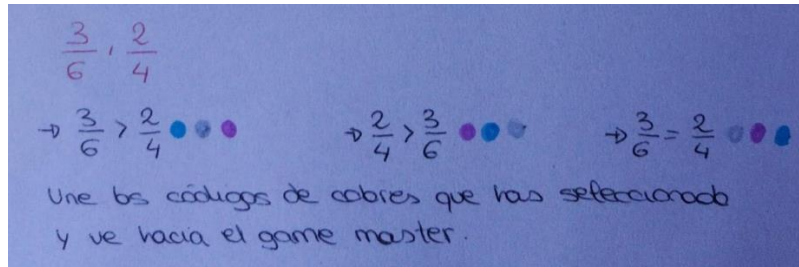 3/6 , 2/4
→ 3/6 > 2/4 → 2/4 > 3/6 → 3/6 = 2/4
Une los códigos de colores que has seleccionado
y ve hacia el game master.